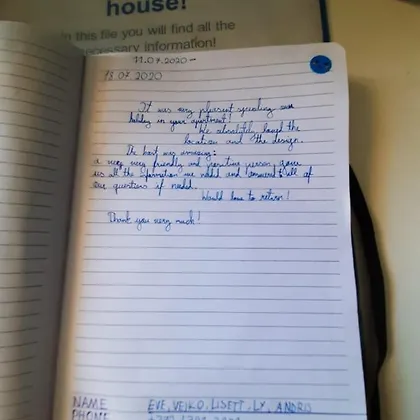 house!
In this file you will find all the
necessary information!
11.07.2020 -
13.07.2020
It was very pleasant spending our
holiday in your apartment!
We absolutely loved the
location and the design.
The host was amazing:
a very very friendly and positive person, gave
us all the information we needed and answered all of
our questions if needed.
Would love to return!
Thank you very much!
NAME EVE, VEIKO, LISETT, LY, ANDRIS
PHONE